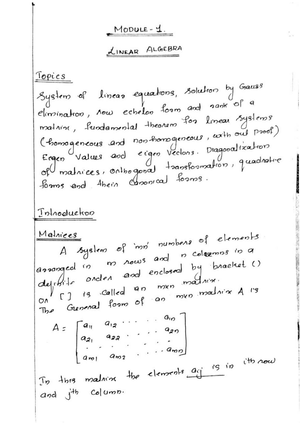 MODULE-1.
LINEAR ALGEBRA
Topics
System of linear equations, Solution by Gauss
elimination, row echelon form and rank of a
matrix, fundamental theorem for linear systems
(homogeneous and non-homogeneous, with out proof)
Eigen Values and eigen Vectors. Diagonalization
of matrices, orthogonal transformation, quadratic
forms and their canonical forms.
Introduction
Matrices
A system of 'mn' numbers of elements
arranged in m rows and n columns in a
definite order and enclosed by bracket ()
or [ ] is called an mxn matrix.
The General form of an mxn matrix A is
A = [ a11 a12 . . . . . a1n
a21 a22 . . . . . a2n
. . . . . . .
am1 am2 . . . . amn ]
In this matrix the elements aij is in ith row
and jth column.